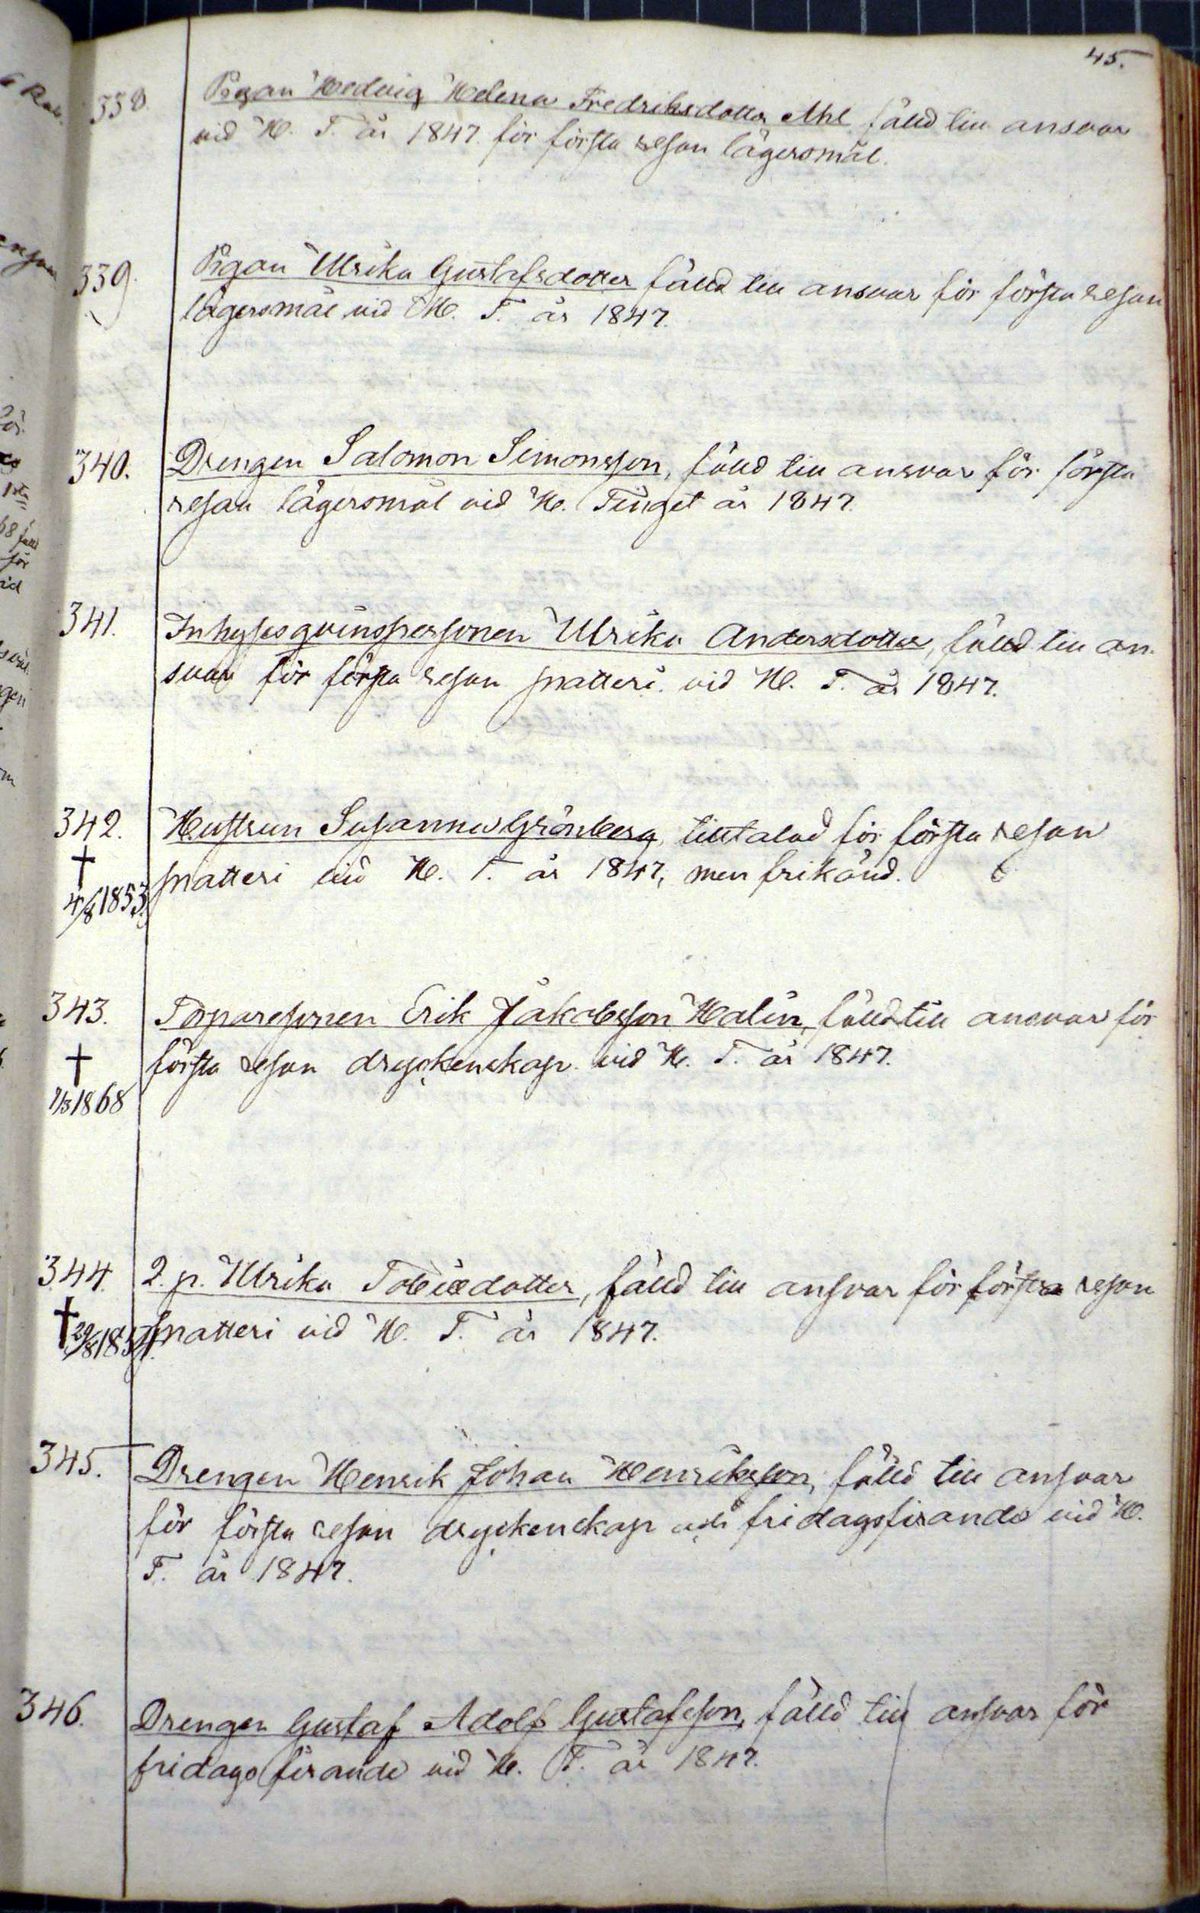 45.
338. Pigan Hedvig Helena Fredriksdotter Ahl fälld till ansvar
vid H. T. år 1847 för första resan lägersmål.
339. Pigan Ulrika Gustafsdotter fälld till ansvar för första resan
lägersmål vid H. T. år 1847.
340. Drengen Salomon Simonsson, fälld till ansvar för första
resan lägersmål vid H. Tinget år 1847.
341. Inhysesqvinspersonen Ulrika Andersdotter, fälld till an-
svar för första resan snatteri vid H. T. år 1847.
342. Hustrun Susanna Grönberg, tilltalad för första resan
† snatteri vid H. T. år 1847, men frikänd.
4/8 1853.
343. Torparesonen Erik Jakobsson Malin, fälld till ansvar för
† första resan dryckenskap vid H. T. år 1847.
1/3 1868
344. 2. p. Ulrika Tobiedotter, fälld till ansvar för första resan
† snatteri vid H. T. år 1847.
345. Drengen Henrik Johan Henriksson, fälld till ansvar
för första resan dryckenskap och fridagsfirande vid H.
T. år 1847.
346. Drengen Gustaf Adolf Gustafsson, fälld till ansvar för
fridagsfirande vid H. T. år 1847.